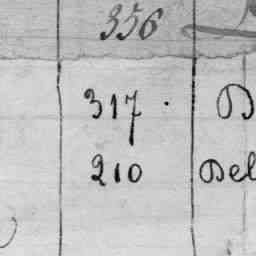 356
317 · B
210 Del